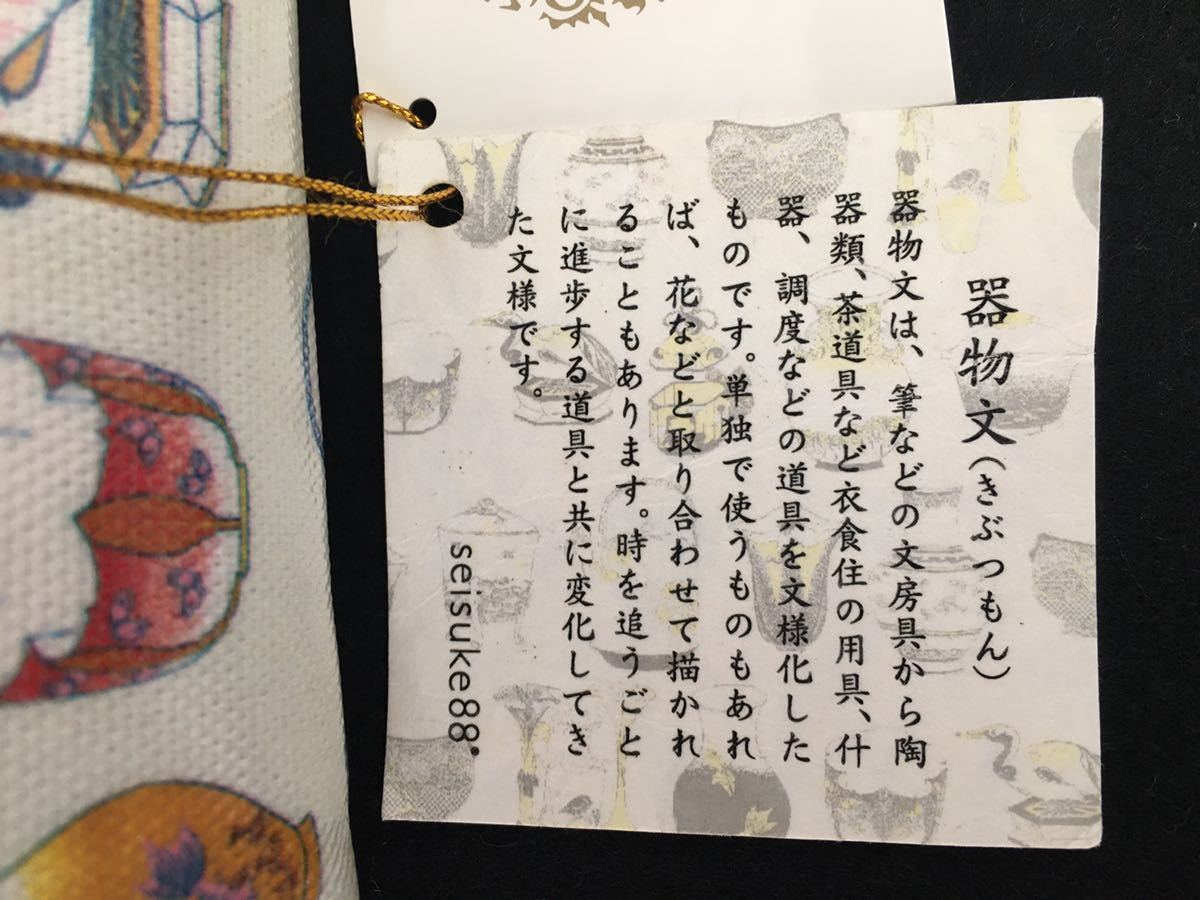 器物文（きぶつもん）
器物文は、筆などの文房具から陶
器類、茶道具など衣食住の用具、什
器、調度などの道具を文様化した
ものです。単独で使うものもあれ
ば、花などと取り合わせて描かれ
ることもあります。時を追うごと
に進歩する道具と共に変化してき
た文様です。
seisuke88